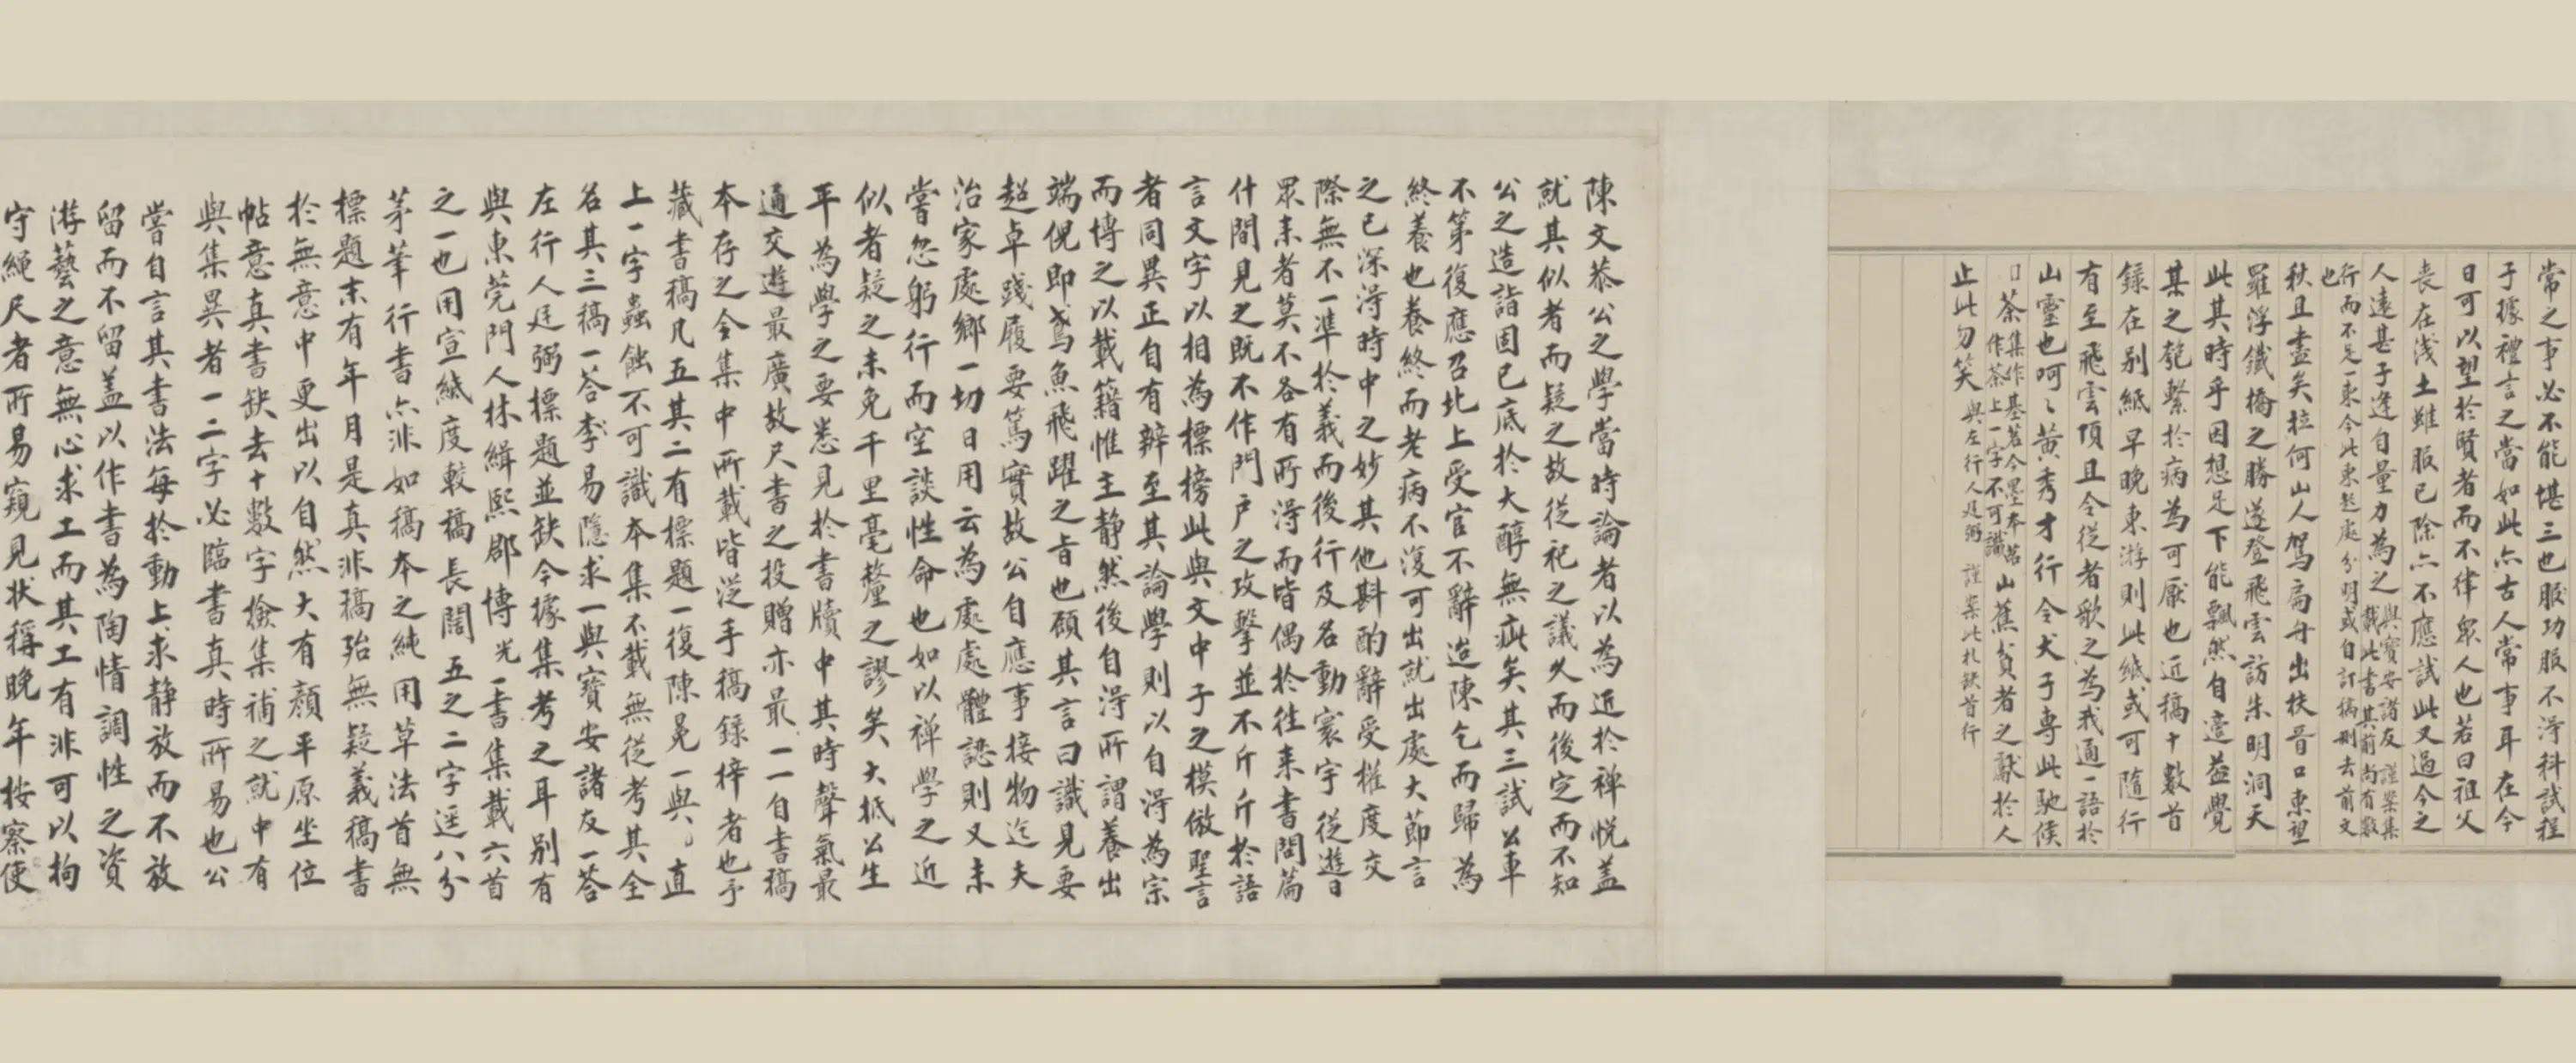 常之事必不能堪三也服功服不淂科試程
于據禮言之當如此亦古人常事耳在今
日可以望於賢者而不律眾人也若曰祖父
喪在淺土雖服已除亦不應試此又過今之
人遠甚子逢自量力為之與寶安諸友謹案集
載此書其前尚有數
行而不足一柬今此柬起處分明或自訂稿刪去前文
也
秋且盡矣拉何山人駕扁舟出扶胥口東望
羅浮鐵橋之勝遂登飛雲訪朱明洞天
此其時乎因想足下能飄然自遣益覺
某之匏繫於病為可厭也近稿十數首
錄在别紙早晚東游則此紙或可隨行
有至飛雲頂且令從者歌之為我通一語於
山靈也呵〻黄秀才行令犬子專此馳候
□茶集作基茗今墨本茗
作茶上一字不可識山蕉貧者之獻於人
止此勿笑與左行人廷弼 謹案此札缺首行
陳文恭公之學當時論者以為近於禅悦盖
就其似者而疑之故從祀之議久而後定而不知
公之造詣固已底於大醇無疵矣其三試公車
不第復應召北上受官不辭迨陳乞而歸為
終養也養終而老病不復可出就出處大節言
之已深淂時中之妙其他斟酌辭受權度交
際無不一準於義而後行及名動寰宇從遊日
眾来者莫不各有所淂而皆偶於往来書問篇
什間見之既不作門戶之攻擊並不斤斤於語
言文字以相為標榜此與文中子之模倣聖言
者同異正自有辨至其論學則以自淂為宗
而博之以載籍惟主静然後自淂所謂養出
端倪即鳶魚飛躍之旨也顧其言曰識見要
超卓踐履要篤實故公自應事接物迄夫
治家處鄉一切日用云為處處體認則又未
嘗忽躬行而空談性命也如以禅學之近
似者疑之未免千里毫釐之謬矣大抵公生
平為學之要悉見於書牘中其時聲氣最
通交遊最廣故尺書之投贈亦最一一自書稿
本存之今集中所載皆從手稿錄梓者也予
藏書稿凡五其二有標題一復陳冕一與〻直
上一字蟲蝕不可識本集不載無從考其全
名其三稿一答李易隱求一與寶安諸友一答
左行人廷弼標題並缺今據集考之耳别有
與東莞門人林緝熙郡博光一書集載六首
之一也用宣紙度較稿長闊五之二字逕八分
茅筆行書亦非如稿本之純用草法首無
標題末有年月是真非稿殆無疑義稿書
於無意中更出以自然大有顏平原坐位
帖意真書缺去十數字撿集補之就中有
與集異者一二字必臨書真時所易也公
嘗自言其書法每於動上求静放而不放
留而不留盖以作書為陶情調性之資
游藝之意無心求工而其工有非可以拘
守繩尺者所易窺見状稱晚年按察使